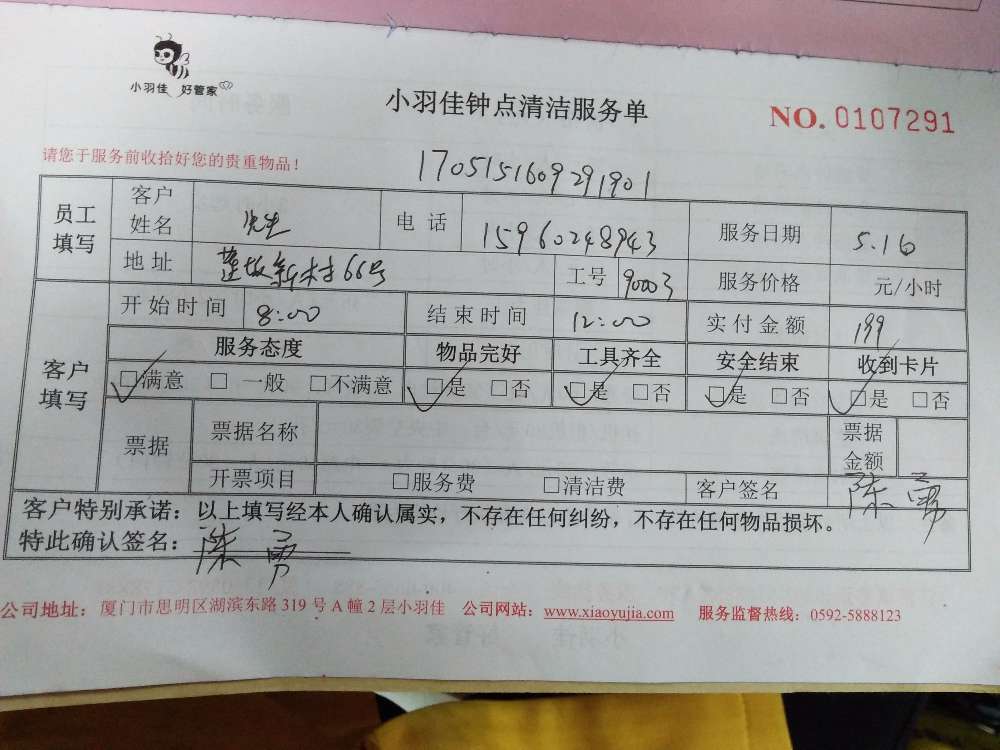 小羽佳 好管家
小羽佳钟点清洁服务单
NO. 0107291
请您于服务前收拾好您的贵重物品！
1705151609291901
员工填写 客户姓名 先生 电话 15960248943 服务日期 5.16
地址 莲坂新村66号 工号 90003 服务价格 元/小时
客户填写 开始时间 8:00 结束时间 12:00 实付金额 199
服务态度 物品完好 工具齐全 安全结束 收到卡片
☑满意 □一般 □不满意 ☑是 □否 ☑是 □否 ☑是 □否 ☑是 □否
票据 票据名称 票据金额
开票项目 □服务费 □清洁费 客户签名 陈勇
客户特别承诺：以上填写经本人确认属实，不存在任何纠纷，不存在任何物品损坏。
特此确认签名：陈勇
公司地址：厦门市思明区湖滨东路 319 号 A 幢 2 层小羽佳 公司网站：www.xiaoyujia.com 服务监督热线：0592-5888123